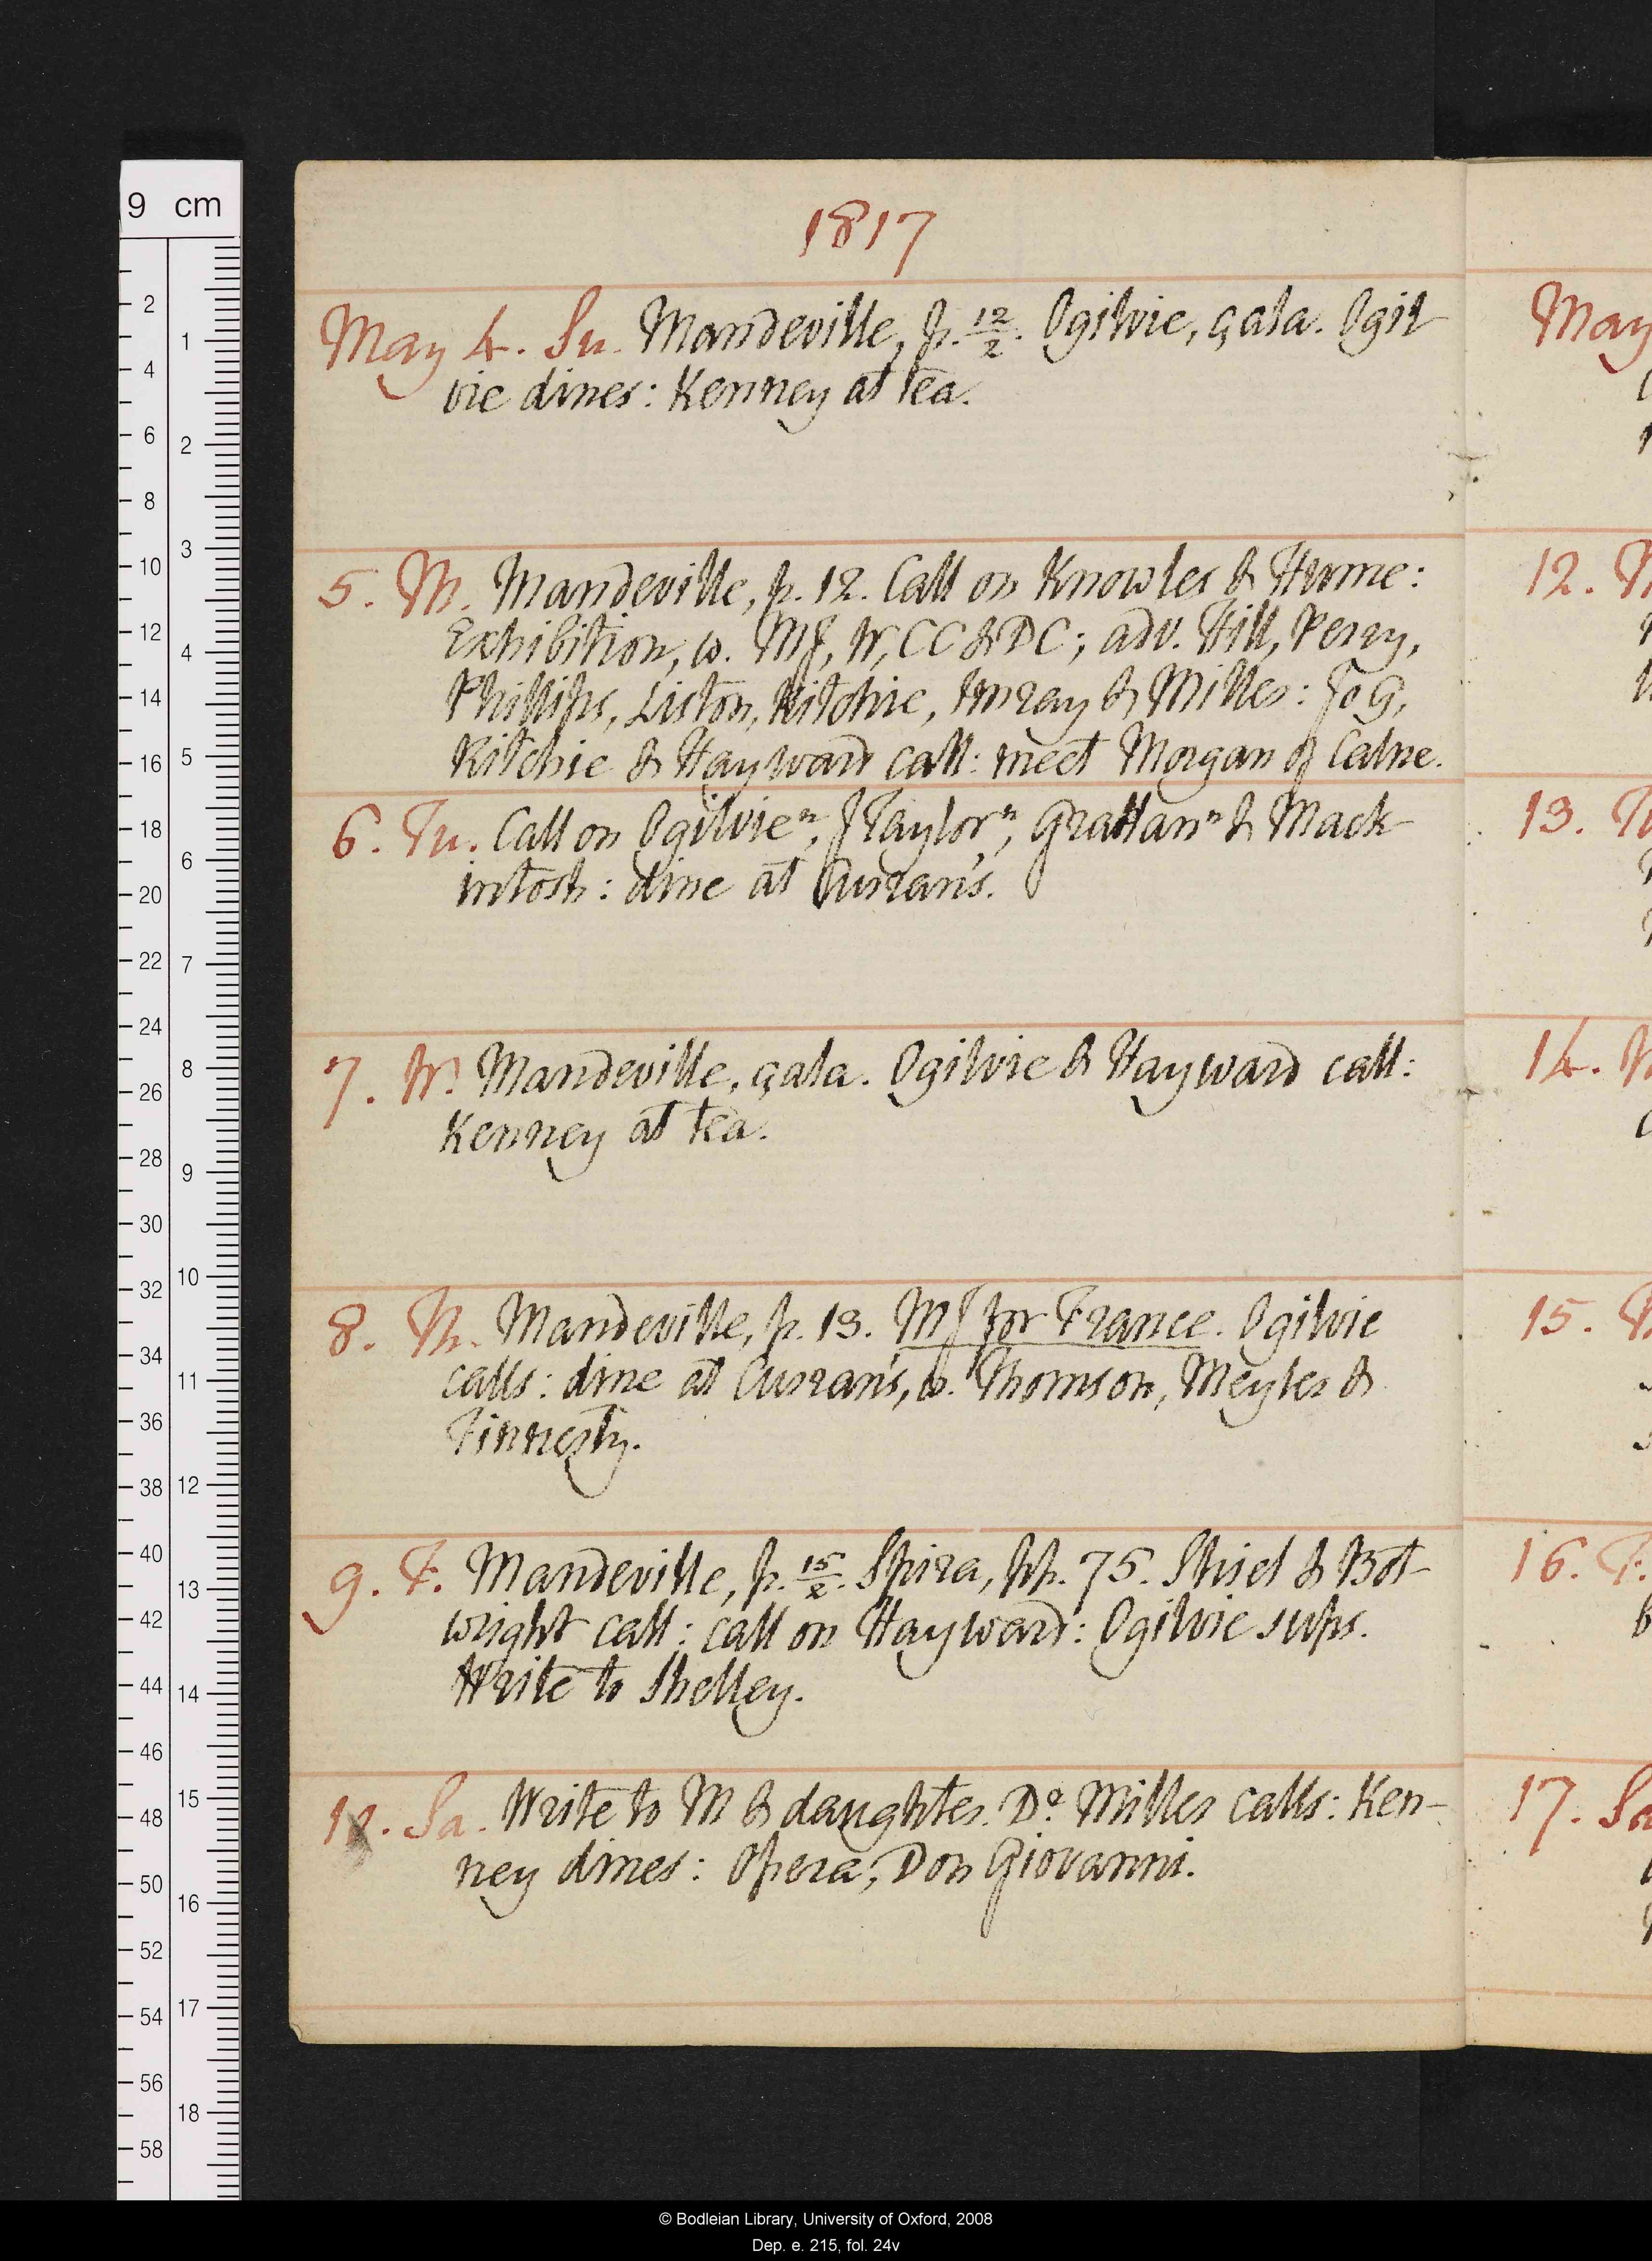 9 cm
1817
May 4. Su. Mandeville, p. 12/2. Ogilvie, çala. Ogil-
vie dines: Kenney at tea.
5. M. Mandeville, p. 12. Call on Knowles & Hume:
Exhibition, w. MJ, W, CC & DC; adv. Hill, Perry,
Phillips, Liston, Ritchie, Imray & Miller: Jo G,
Ritchie & Hayward call: meet Morgan of Calne.
6. Tu. Call on Ogilvie n, J Taylor n, Grattan n & Mack-
intosh: dine at Curran's.
7. W. Mandeville, çala. Ogilvie & Hayward call:
Kenney at tea.
8. Th. Mandeville, p. 13. MJ for France. Ogilvie
calls: dine at Curran's, w. Thomson, Meyler &
Finnerty.
9. F. Mandeville, p. 15/2. Spira, pp. 75. Shiel & Bot-
wright call: call on Hayward: Ogilvie sups.
Write to Shelley.
10. Sa. Write to M & daughter. Do Miller calls: Ken-
ney dines: Opera, Don Giovanni.
May
12.
13.
14.
15.
16. F.
17. Sa
© Bodleian Library, University of Oxford, 2008
Dep. e. 215, fol. 24v